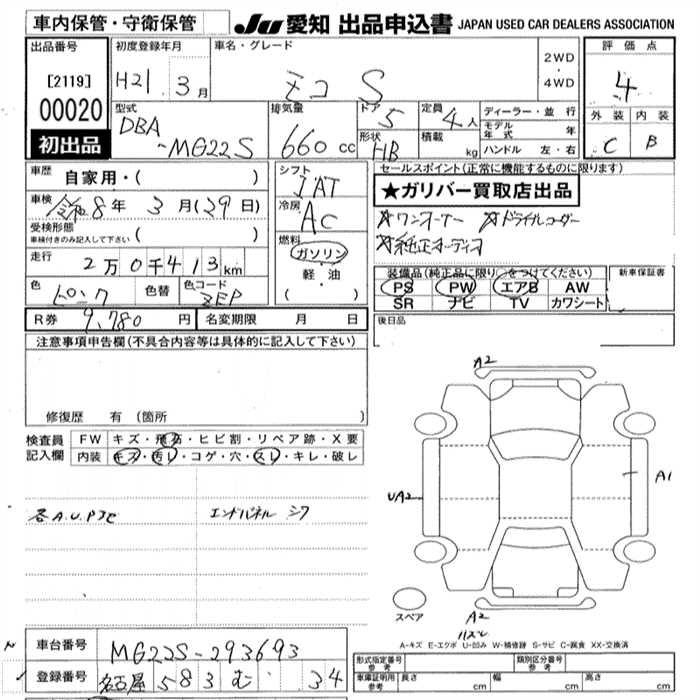 車内保管・守衛保管
JU 愛知 出品申込書 JAPAN USED CAR DEALERS ASSOCIATION
出品番号
[2119]
00020
初出品
初度登録年月
H21. 3月
車名・グレード
モコ S
2WD
・
4WD
評価点
4
外装 内装
C B
型式
DBA
-MG22S
排気量
660 cc
ドア
5
形状
HB
定員
4人
積載
kg
ディーラー・並行
モデル年式 年
ハンドル 左・右
車歴
自家用・( )
車検
令和8年 3月(29日)
受検形態
車検付きのみ記入して下さい ( )
走行
2万0千413km
色
ピンク
色替
色コード
ZEP
シフト
IAT
冷房
AC
燃料
ガソリン
・
軽・油
( )
セールスポイント(正常に機能するものに限ります)
★ガリバー買取店出品
☆ワンオーナー ☆ドライブレコーダー
☆純正オーディオ
装備品(純正品に限り○をつけてください)
PS PW エアB AW
SR ナビ TV カワシート
新車保証書
後日品
R券 9,780円
名変期限 月 日
注意事項申告欄(不具合内容等は具体的に記入して下さい)
修復歴 有 (箇所 )
検査員
記入欄
FW キズ・飛石・ヒビ割・リペア跡・X要
内装 キズ・汚レ・コゲ・穴・スレ・キレ・破レ
各A.U.P
エンドパネル シワ
A2
UA2
A1
スペア
A2
A-キズ E-エクボ U-凹み W-補修跡 S-サビ C-腐食 XX-交換済
車台番号 MG22S-293693
登録番号 名古屋 583 む 34
形式指定番号
参考
類別区分番号
参考
車庫証明用
参考
長さ cm 幅 cm 高さ cm